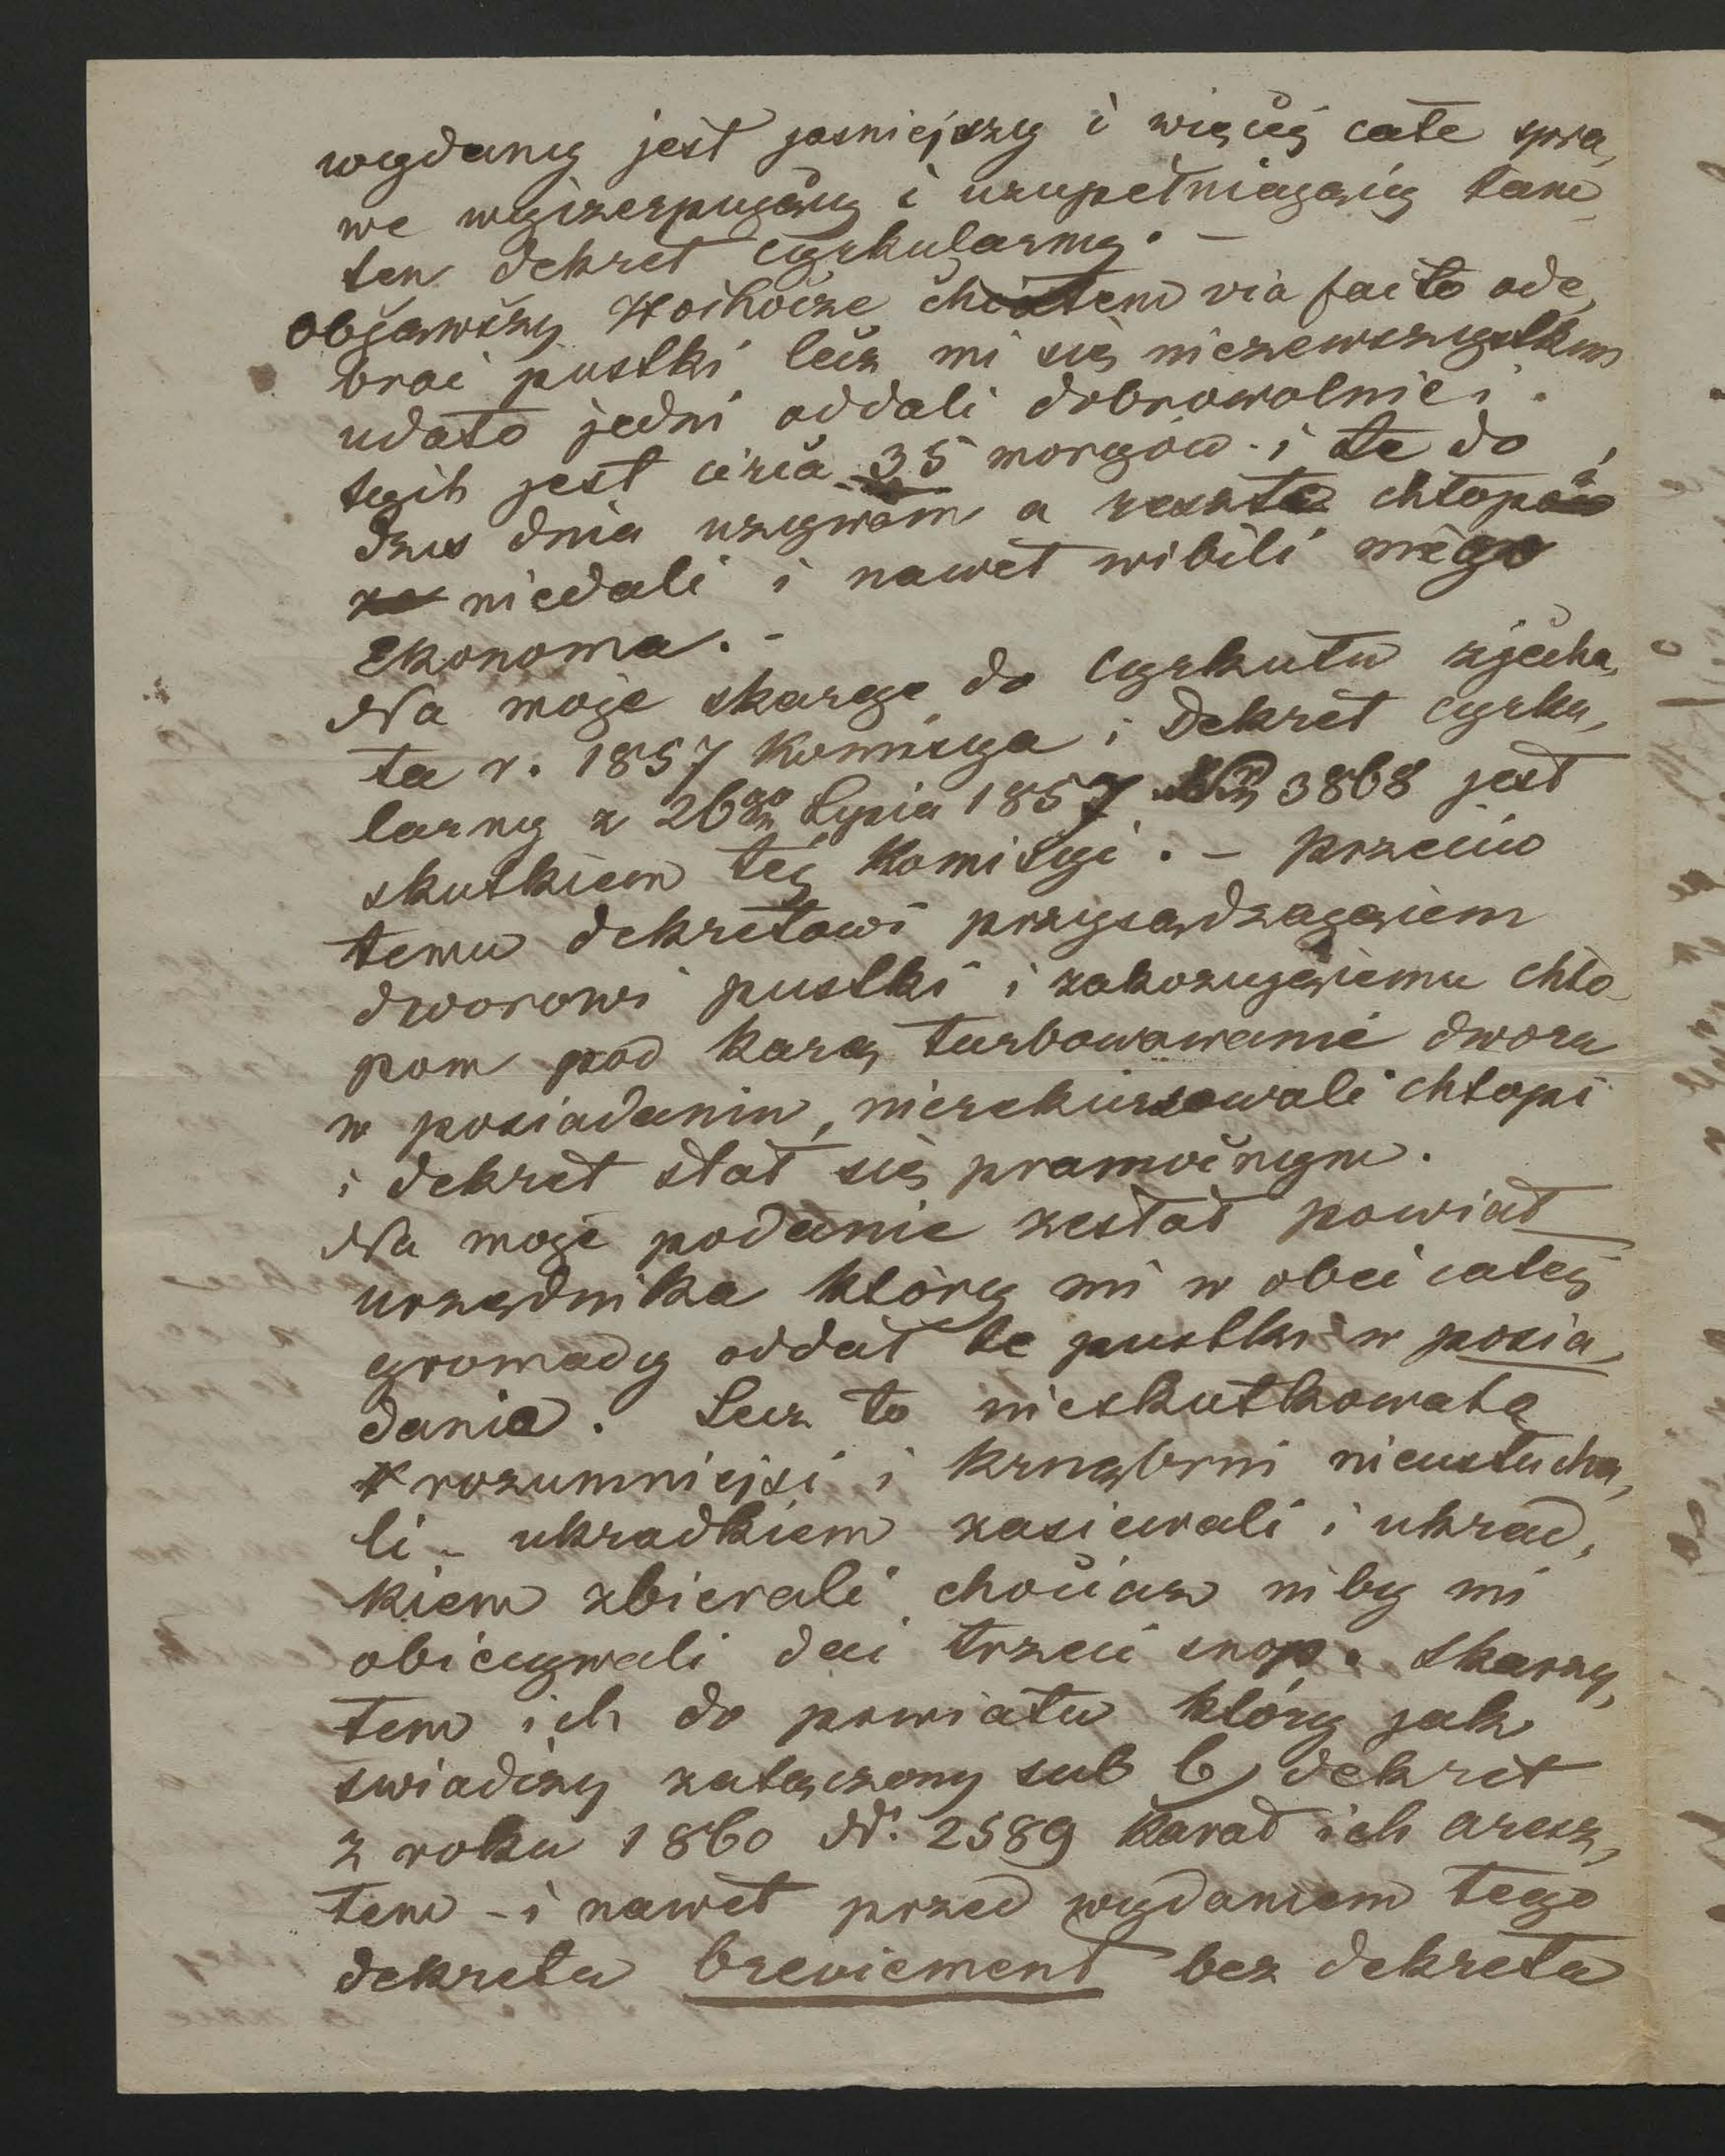 wydany jest jasniejszy i więcej całe spra,
wę wyczerpujący i uzupełniający tam
ten dekret cyrkularny. –
Objąwszy Hoihocze chciałem via facto ode,
brać pustki lecz mi się niezewszystkim
udało jedni oddali dobrowolnie i
tych jest circa 35 morgów i te do
dzis dnia uzywam a reszta chłopów
niedali i nawet wibili mégo
Ekonoma. –
Na moje skargę do Cyrkułu zjecha,
ła r. 1857 Komisya i Dekret cyrku,
larny z 26go Lipca 1857 3868 jest
skutkiem téj Komisyi. – przeciw
temu dekretowi przysądzającem
dworowi pustki i zakazującemu chło
pom pod karą turbowawanie dworu
w posiadaniu, nierekursowali chłopi
i dekret stał się pramocnym.
Na moje podanie zesłał powiat
urzędnika który mi w obec całéj
gromady oddał te pustki w posia,
dania. Lecz to nieskutkowało
rozumniejsi i krnąbrni nieusłucha,
li – ukradkiem zasiewali i ukrad,
kiem zbierali chociaz niby mi
obiecywali dać trzeci snop. Skarzy,
łem ich do powiatu który jak
swiadczy załączony sub b) dekret
z roku 1860 Nr. 2589 karał ich aresz,
tem – i nawet przed wydaniem tego
dekretu breviement bez dekretu